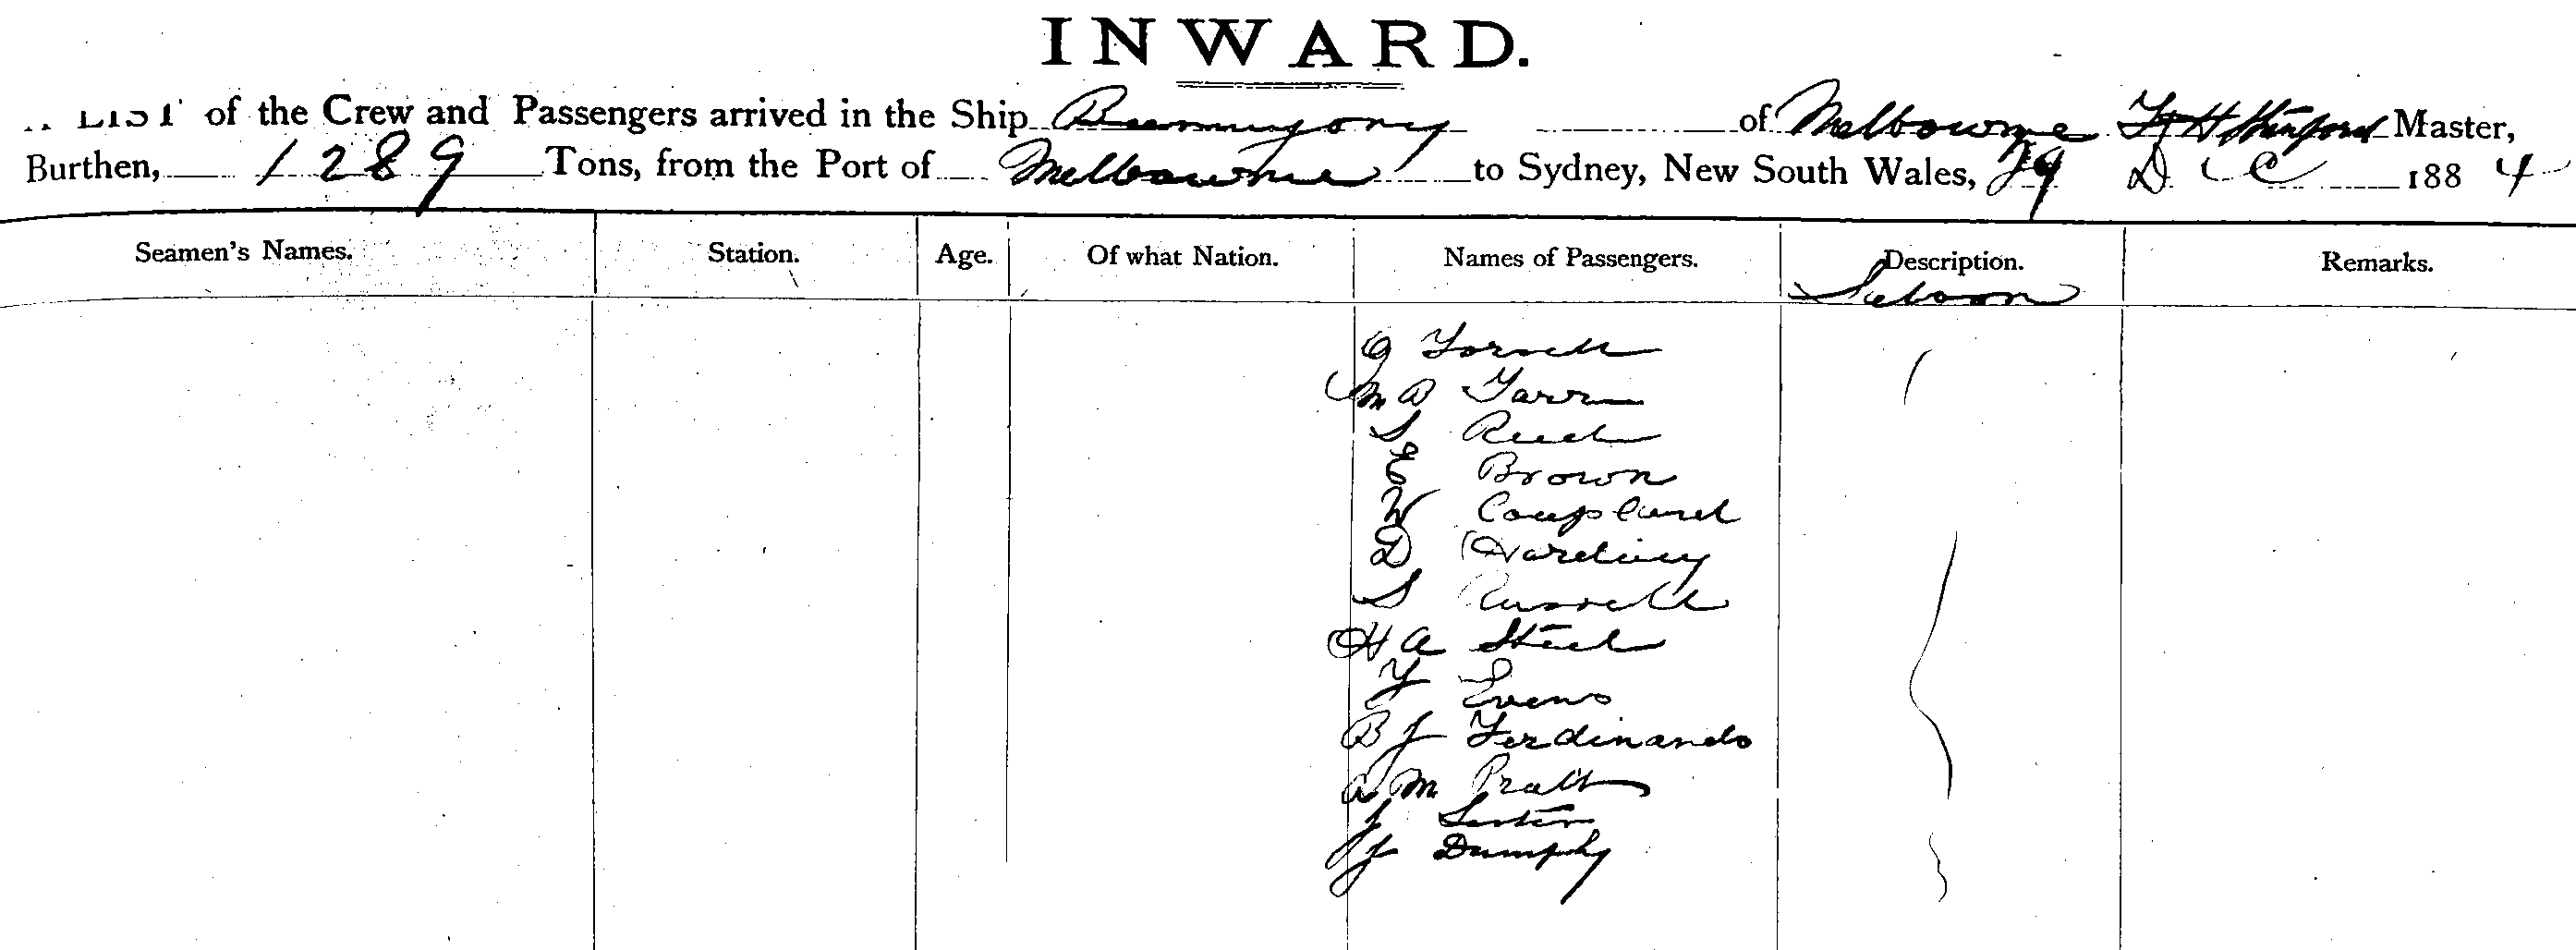 INWARD.
LIST of the Crew and Passengers arrived in the Ship Buninyong of Melbourne Master,
Burthen, 1289 Tons, from the Port of Melbourne to Sydney, New South Wales, 29 Dec 1884
Seamen's Names. Station. Age. Of what Nation. Names of Passengers. Description. Remarks.
Saloon
G
M A
S Reed
E Brown
W Coupland
D Harding
S Russell
H A Steel
Evens
B J Ferdinando
A M Pratt
J Lester
J Dumphy